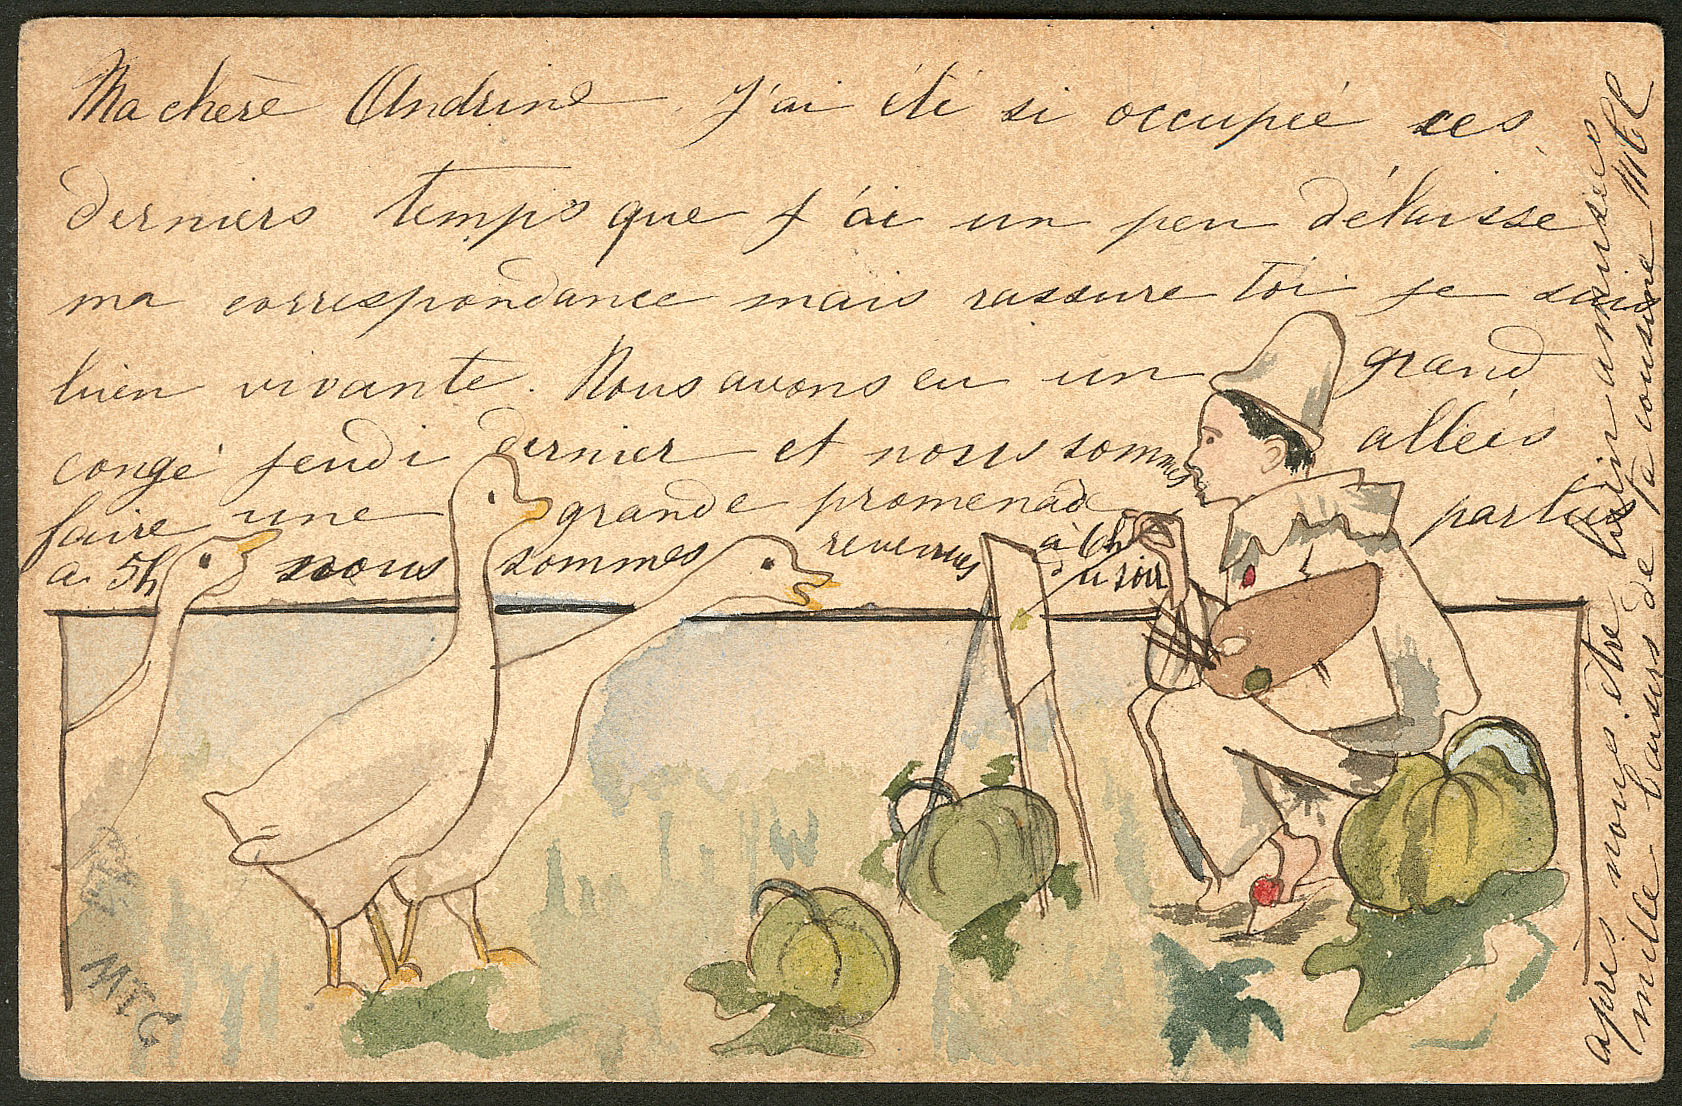 Ma chère Andrine. J'ai été si occupée ces
derniers temps que j'ai un peu délaissé
ma correspondance mais rassure toi je suis
bien vivante. Nous avons eu un grand
congé jeudi dernier et nous sommes allées
faire une grande promenade parties
a 5h nous sommes revenues à 6h
du soir
après nous être bien amusées
mille baisers de ta cousine
MTC